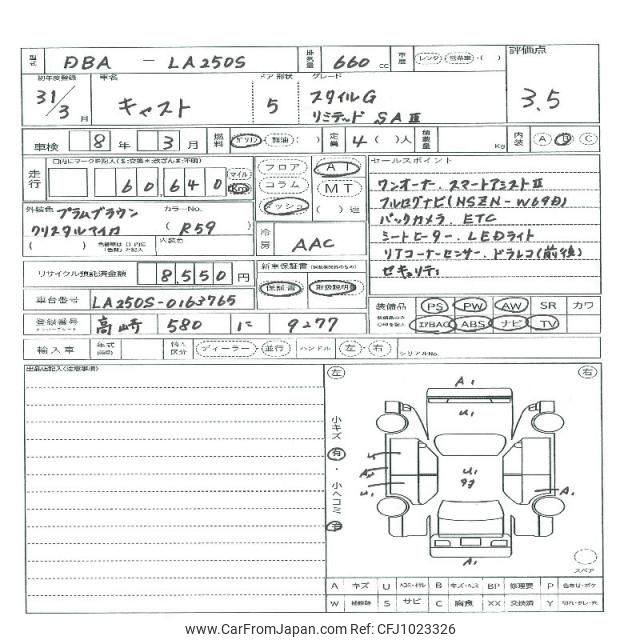 型式 DBA - LA250S 排気量 660 cc 車歴 レンタ・営業車・( ) 評価点
初年度登録 31/3月 車名 キャスト ドア形状 5 グレード スタイルG リミテッド SAⅢ 3.5
車検 8年 3月 燃料 ガソリン・軽油・( ) 定員 4( )人 積載量 Kg 内装 A B C
走行 60,640 マイル Km フロア コラム AT MT ( )速
セールスポイント
ワンオーナー. スマートアシストⅢ
フルセグナビ(NSZN-W69D)
バックカメラ. ETC
シートヒーター. LEDライト
リアコーナーセンサー. ドラレコ(前後)
セキュリティ
外装色 プラムブラウン クリスタルマイカ カラーNo. (R59) 内装色
冷房 AAC
リサイクル預託済金額 8,550円 新車保証書 保証書 取扱説明書
車台番号 LA250S-0163765
登録番号 高崎 580 に 9277
装備品 PS PW AW SR カワ
エアBAG ABS ナビ TV
輸入車 年式 輸入区分 ディーラー・並行 ハンドル 左・右 シリアルNo.
出品店記入(注意事項)
左 右
小キズ 有・小ヘコミ
A1
U1
U1
A1
A1
スペア
A キズ U B キズ・ヘコミ BP 修理要 P 色あせ・ボケ
W 補修跡 S サビ C 腐食 XX 交換済 Y
www.CarFromJapan.com - CFJ1023326